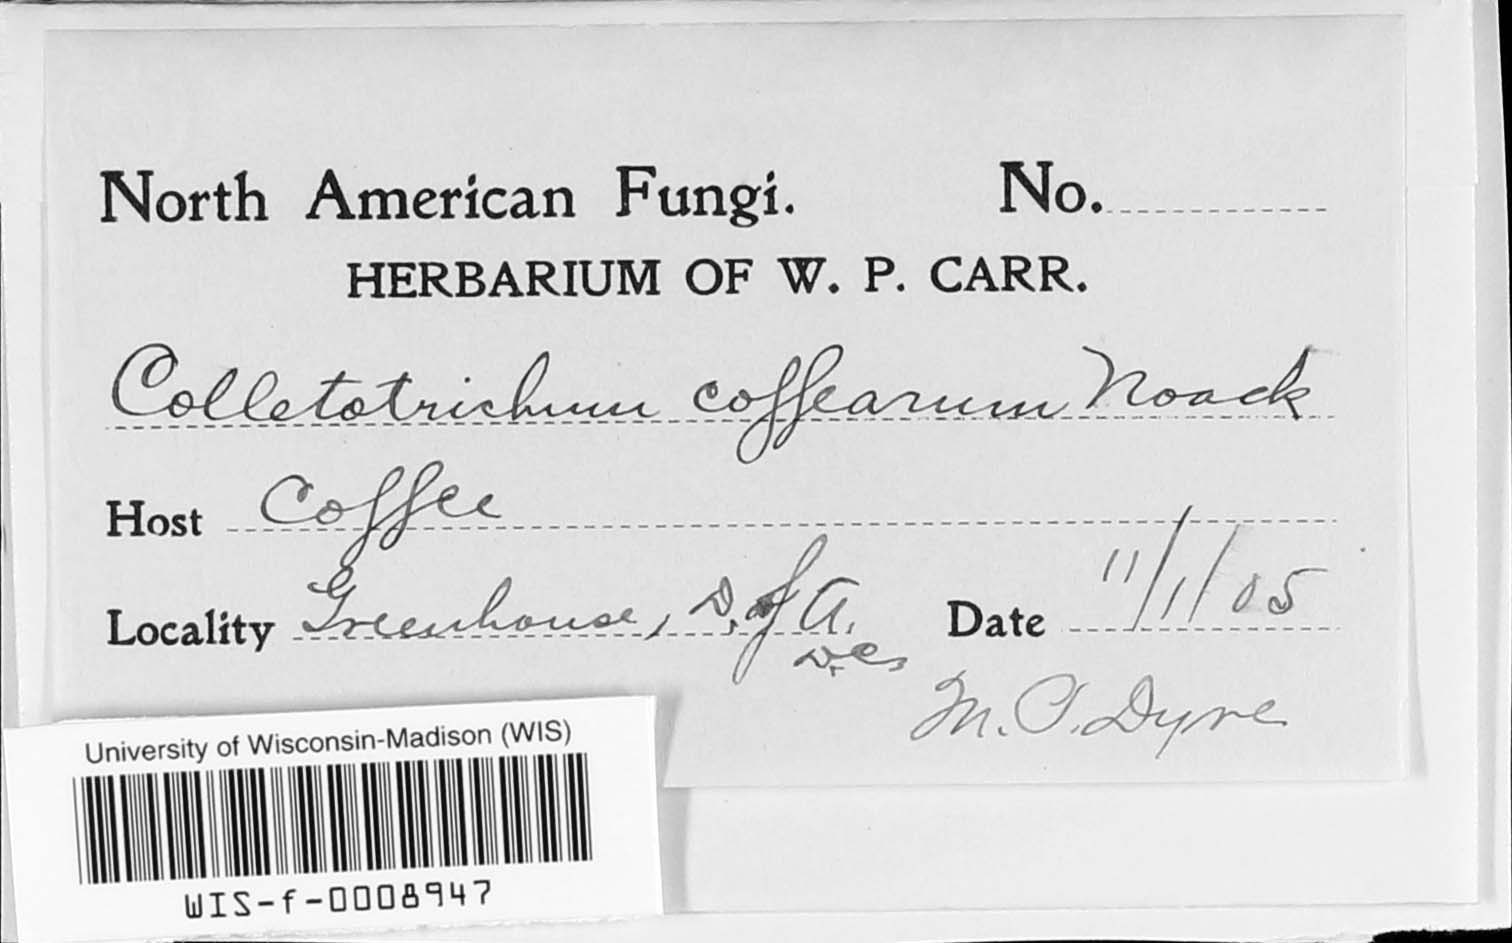 North American Fungi. No.
HERBARIUM OF W. P. CARR.
Colletotrichum coffearum Noack
Host Coffee
Locality Greenhouse, D. of A. Date 11/1/05
D.C.
M. O. Dyre
University of Wisconsin-Madison (WIS)
WIS-f-0008947